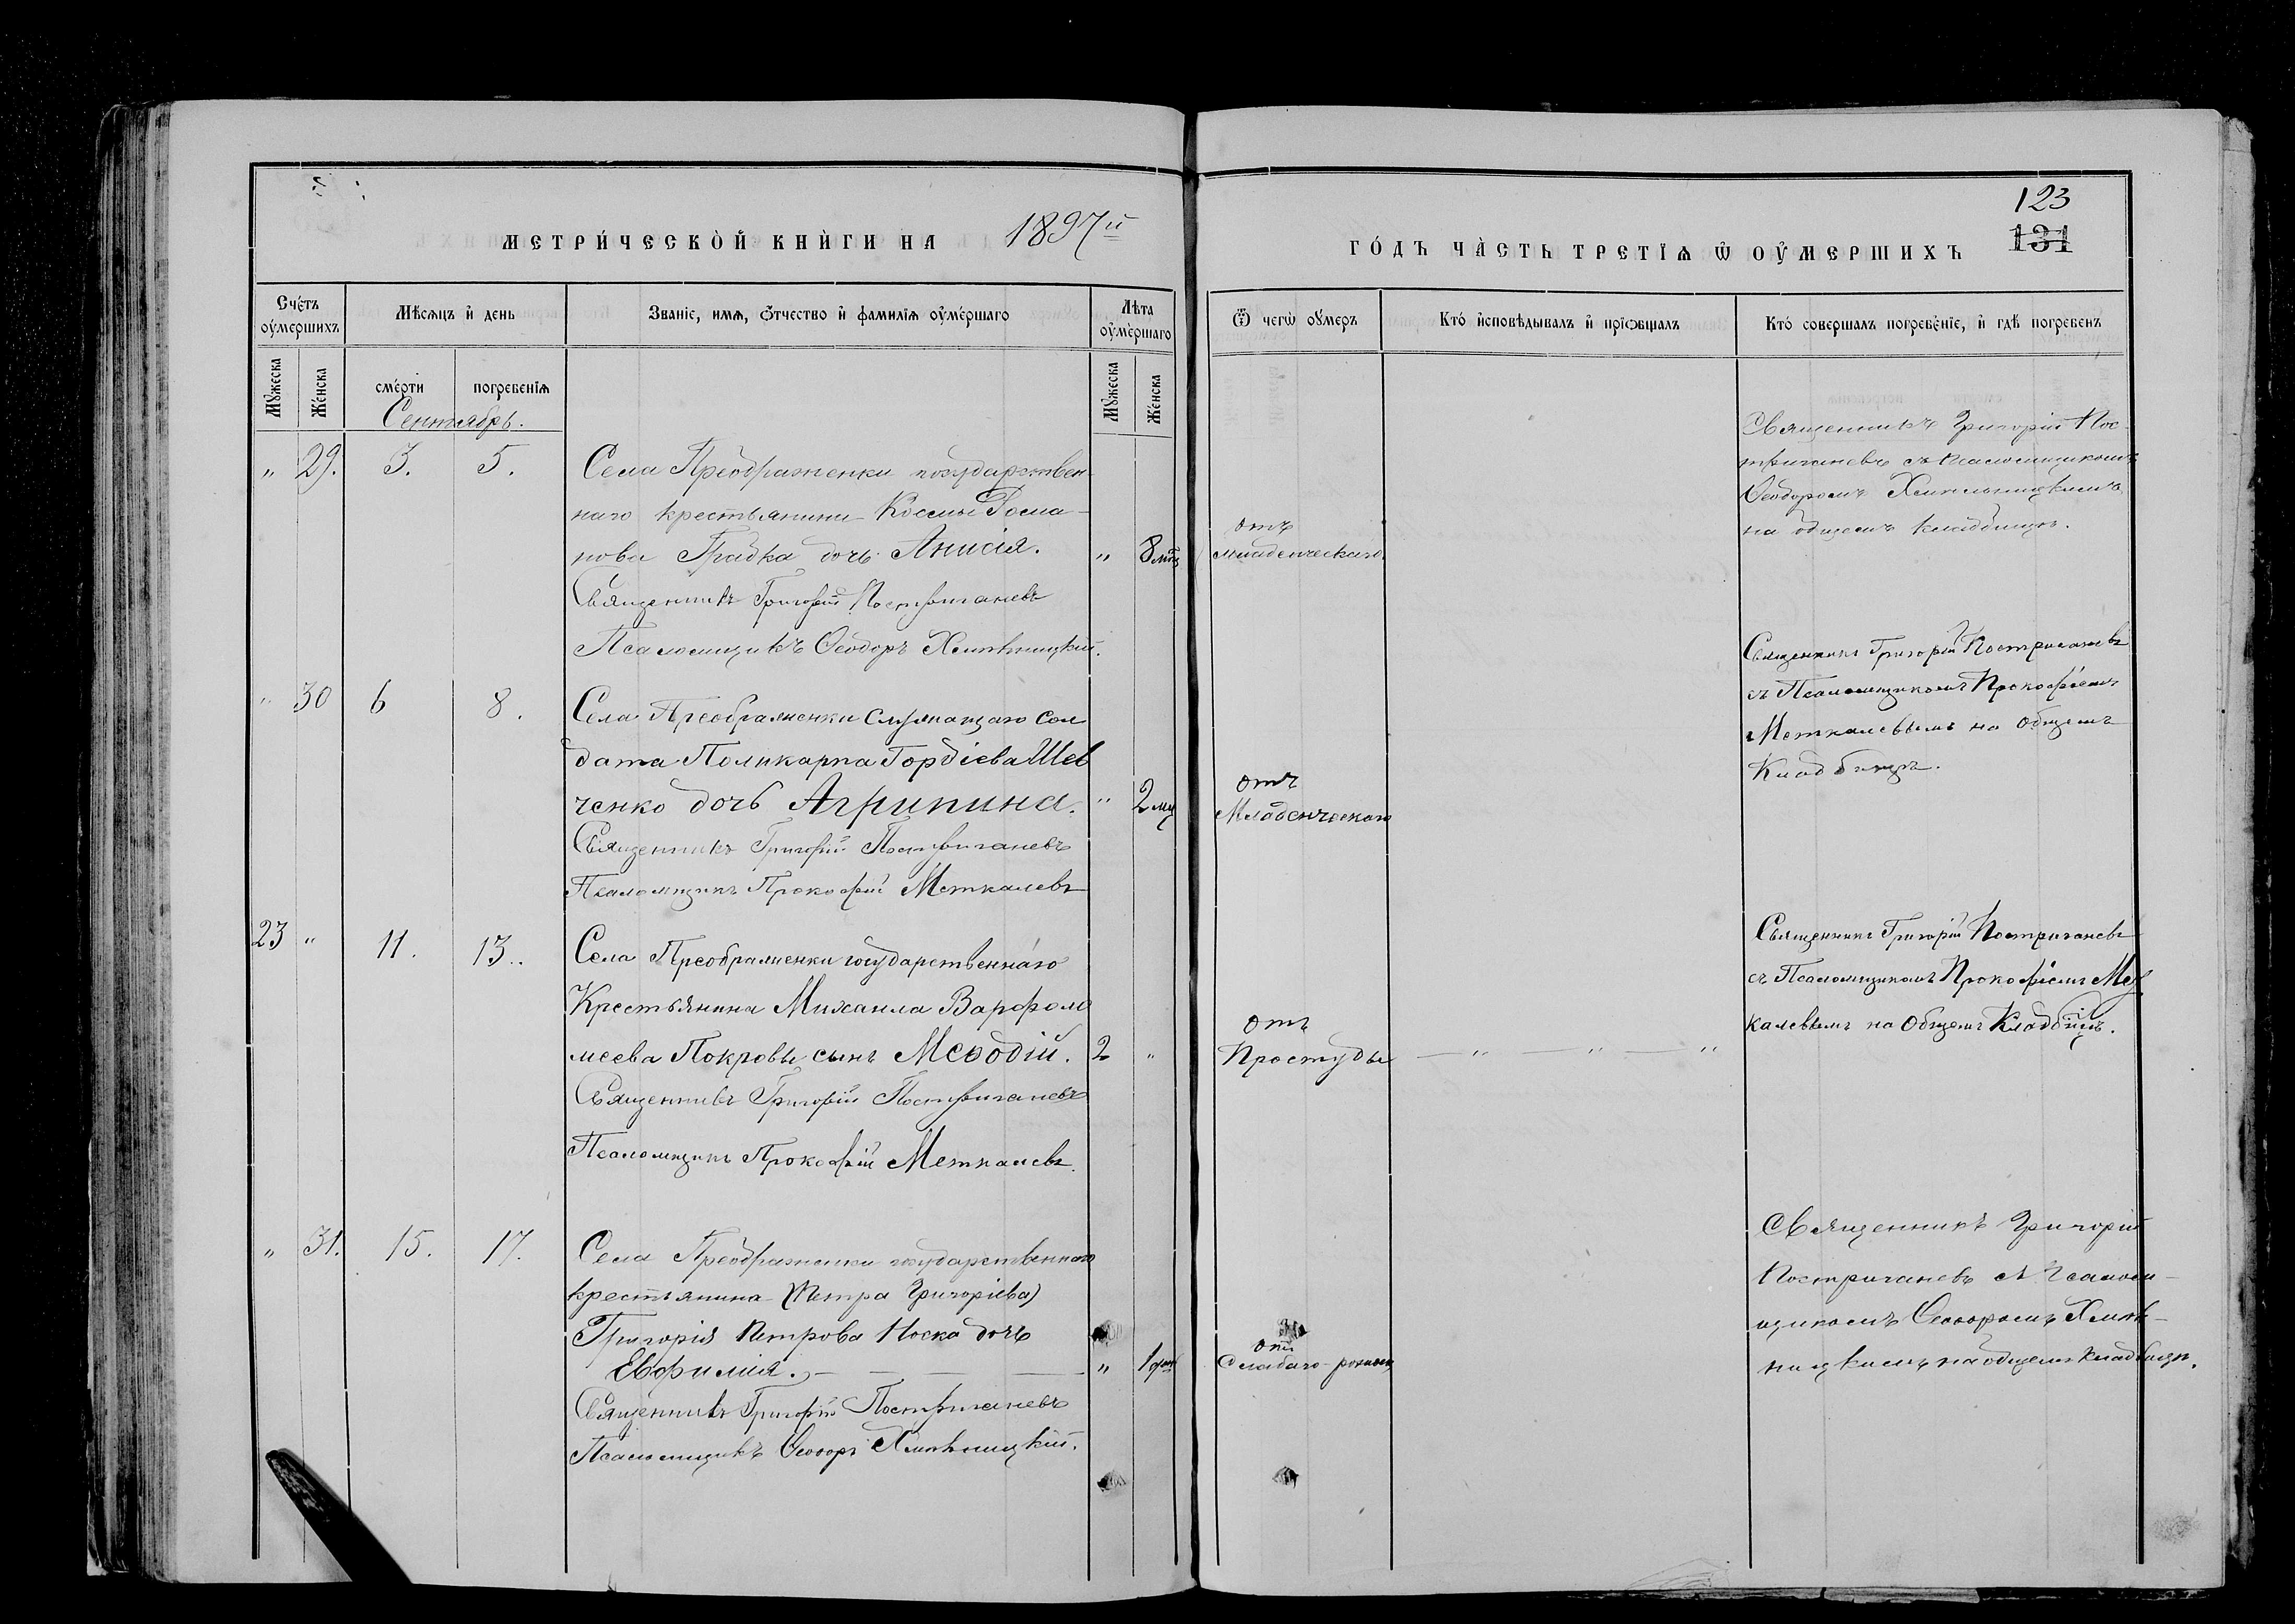 МЕТРИ́ЧЕСКО̀Й КНЍГИ НА 1897й
ГО́ДЪ ЧА̀СТЬ ТРЕТІѦ Ѡ ОУ҆́МЕРШИХЪ
123
131
Сче́тъ оу҆ме́ршихъ
Мѣ́сѧцъ и҆ день
Званіе, имѧ, ѻтчество и҆ фамилїѧ оу҆ме́ршаго
Лѣта оу҆ме́ршаго
Ѿ чегѡ̀ оу҆меръ
Кто́ и҆сповѣ́дывалъ и҆ прїѡбщалъ
Кто́ соверша́лъ погребе́нїе, и҆ гдѣ̀ погребенъ
Мꙋжеска
Же́нска
сме́рти
погребенїѧ
Мꙋжеска
Же́нска
Сентябрь.
" 29. 3. 5.
Села Преображенки государствен-
наго крестьянина Космы Рома-
нова Градка дочь Анисія. " 8 мѣс
Священникъ Григорій Постриганевъ
Псаломщикъ Ѳеодоръ Хмѣльницкій.
отъ
младенческаго
Священникъ Григорій Пос-
триганевъ съ Псаломщикомъ
Ѳеодоромъ Хмельницкимъ
на общемъ кладбищѣ.
" 30 6 8.
Села Преображенки служащаго сол
дата Поликарпа Гордіева Шев
ченко дочь Агрипина. " 2 мц
Священникъ Григорій Постриганевъ
Псаломщикъ Прокофій Меткалевъ
отъ
Младенческаго
Священникъ Григорій Постриганевъ
съ Псаломщикомъ Прокофіемъ
Меткалевымъ на Общемъ
Кладбищѣ.
23 " 11. 13.
Села Преображенки государственнаго
Крестьянина Михаила Варфоло
меева Покровы сынъ Меѳодій. 2 "
Священникъ Григорій Постриганевъ
Псаломщикъ Прокофій Меткалевъ.
отъ
Простуды
— " " — "
Священникъ Григорій Постриганевъ
съ Псаломщикомъ Прокофіемъ Мет
калевымъ на Общемъ Кладбищѣ.
" 31. 15. 17.
Села Преображенки государственнаго
крестьянина (Петра Григоріева)
Григорія Петрова Носка дочь
Евфимія. — " 1 дня
Священникъ Григорій Постриганевъ
Псаломщикъ Ѳеодоръ Хмѣльницкій.
отъ
Слабаго-рожденія
Священникъ Григорій
Постриганевъ съ Псалом-
щикомъ Ѳеодоромъ Хмѣль-
ницкимъ на общемъ кладбищѣ.